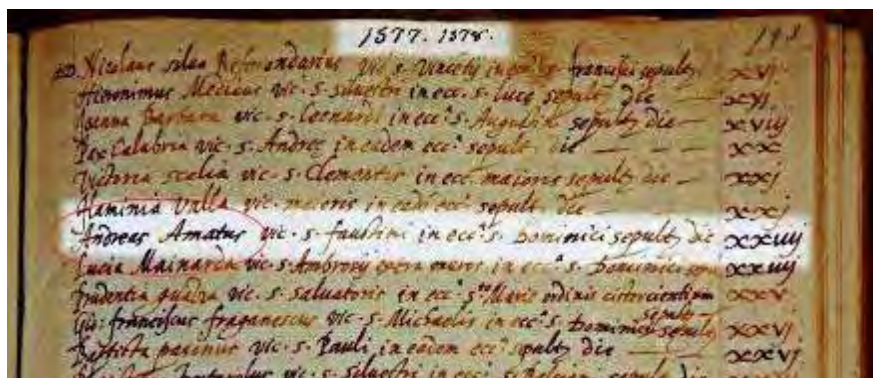 1577. 1578. 193
Nicolaus silva Referendarius vic. s. vincetij in ecc.ª s. francisci sepult, xvj
Hieronimus Medicus vic. s. silvestri in ecc. s. lucę sepult die — xvj
Joanna Barbara vic. s. Leonardi in ecc.ª s. Augustini sepult, die — xviij
Calabria vic. s. Andreę in eadem ecc.ª sepult die — — — xx
Victoria scalia vic. s. Clementis in ecc. maiore sepult, die — xxj
flaminia valla vic. maioris in eadē ecc.ª sepult. die — xxj
Andreas Amatus vic. s. faustini in ecc.ª s. Dominici sepult, die xxiiij
Lucia Mainarda vic. s. Ambrosij extra muros in ecc.ª s. Dominici xxiiij
prudentia vic. s. salvatoris in ecc.ª s.ᵗᵃ Marię ordinis cisterciensium xxv
franciscus vic. s. Michaelis in ecc.ª s. Dominici sepult, xxvj
Baptista vic. s. Pauli in eadem ecc.ª sepult, die — xxvj
vic. s. silvestri in ecc.ª s.